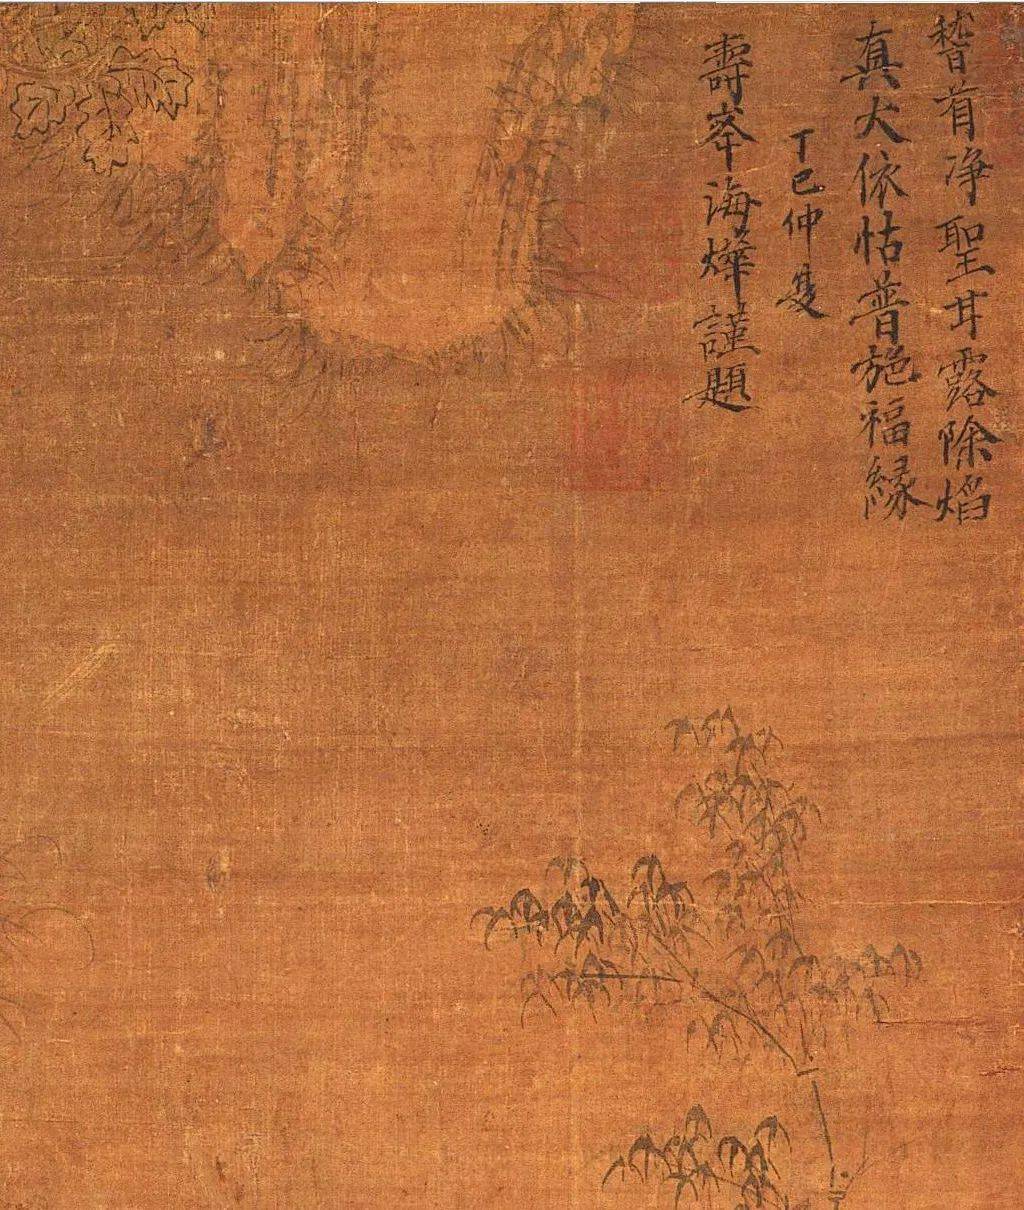 稽首净聖甘露除焰
真火依怙普施福緣
丁巳仲夏
壽峯海燁謹題